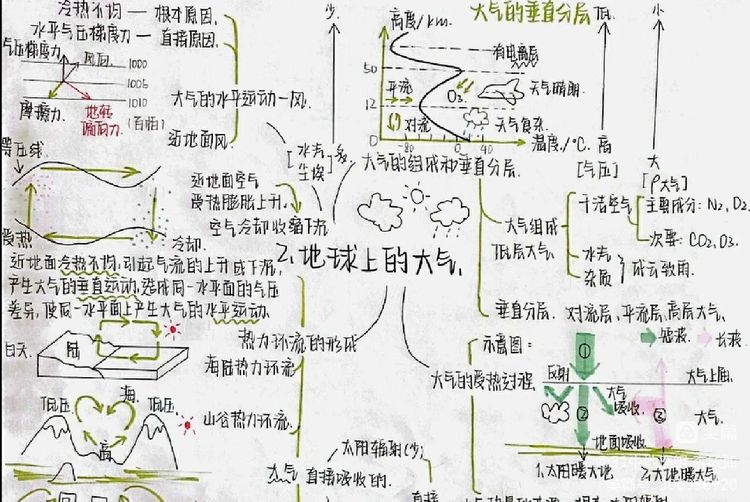 冷热不均 — 根本原因.
水平气压梯度力 — 直接原因.
气压梯度力
风向.
1000
1005
1010
(百帕)
摩擦力.
地转
偏向力.
大气的水平运动—风.
近地面风.
等压线
受热
冷却.
近地面空气
受热膨胀上升.
空气冷却收缩下沉.
近地面冷热不均,引起气流的上升或下沉,
产生大气的垂直运动,造成同一水平面的气压
差异,使同一水平面上产生大气的水平运动.
热力环流的形成
白天.
陆
海.
海陆热力环流
低压
低压.
高
山谷热力环流.
少.
[水汽
尘埃]
多
高度/km.
大气的垂直分层
50
12
平流
对流
O3.
有电离层
天气晴朗.
天气复杂.
-80
-40
0
40
温度/°C.
低.
高
[气压]
小
大
[ρ大气]
大气的组成和垂直分层.
大气组成
低层大气
干洁空气
主要成分: N2,O2.
次要: CO2,O3.
水汽
杂质
成云致雨.
垂直分层. 对流层,平流层,高层大气.
2.地球上的大气.
大气的受热过程
示意图:
短波.
长波.
①
反射
大气上届.
大气
吸收.
②
③
大气.
地面吸收.
1.太阳暖大地
2.大地暖大气.
太阳辐射(少)
大气
直接吸收的.
直接